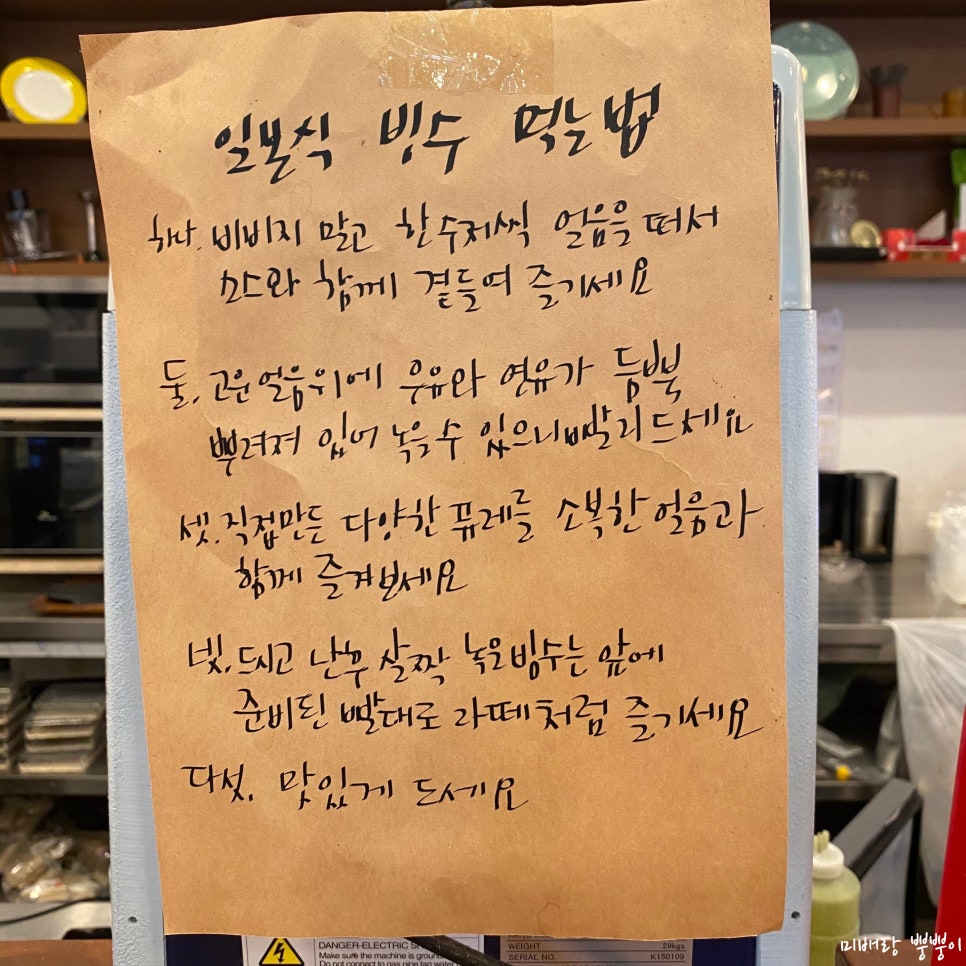 일본식 빙수 먹는법
하나. 비비지 말고 한수저씩 얼음을 떠서
소스와 함께 곁들여 즐기세요
둘. 고운얼음위에 우유와 연유가 듬뿍
뿌려져 있어 녹을수 있으니 빨리드세요
셋. 직접만든 다양한 퓨레를 소복한 얼음과
함께 즐겨보세요
넷. 드시고 난후 살짝 녹은빙수는 앞에
준비된 빨대로 라떼처럼 즐기세요
다섯. 맛있게 드세요
DANGER-ELECTRIC
Make sure the machine is
Do not connect to gas pipe tap water
WEIGHT 29kgs
SERIAL NO. K150109
미배랑 뿡뿡이